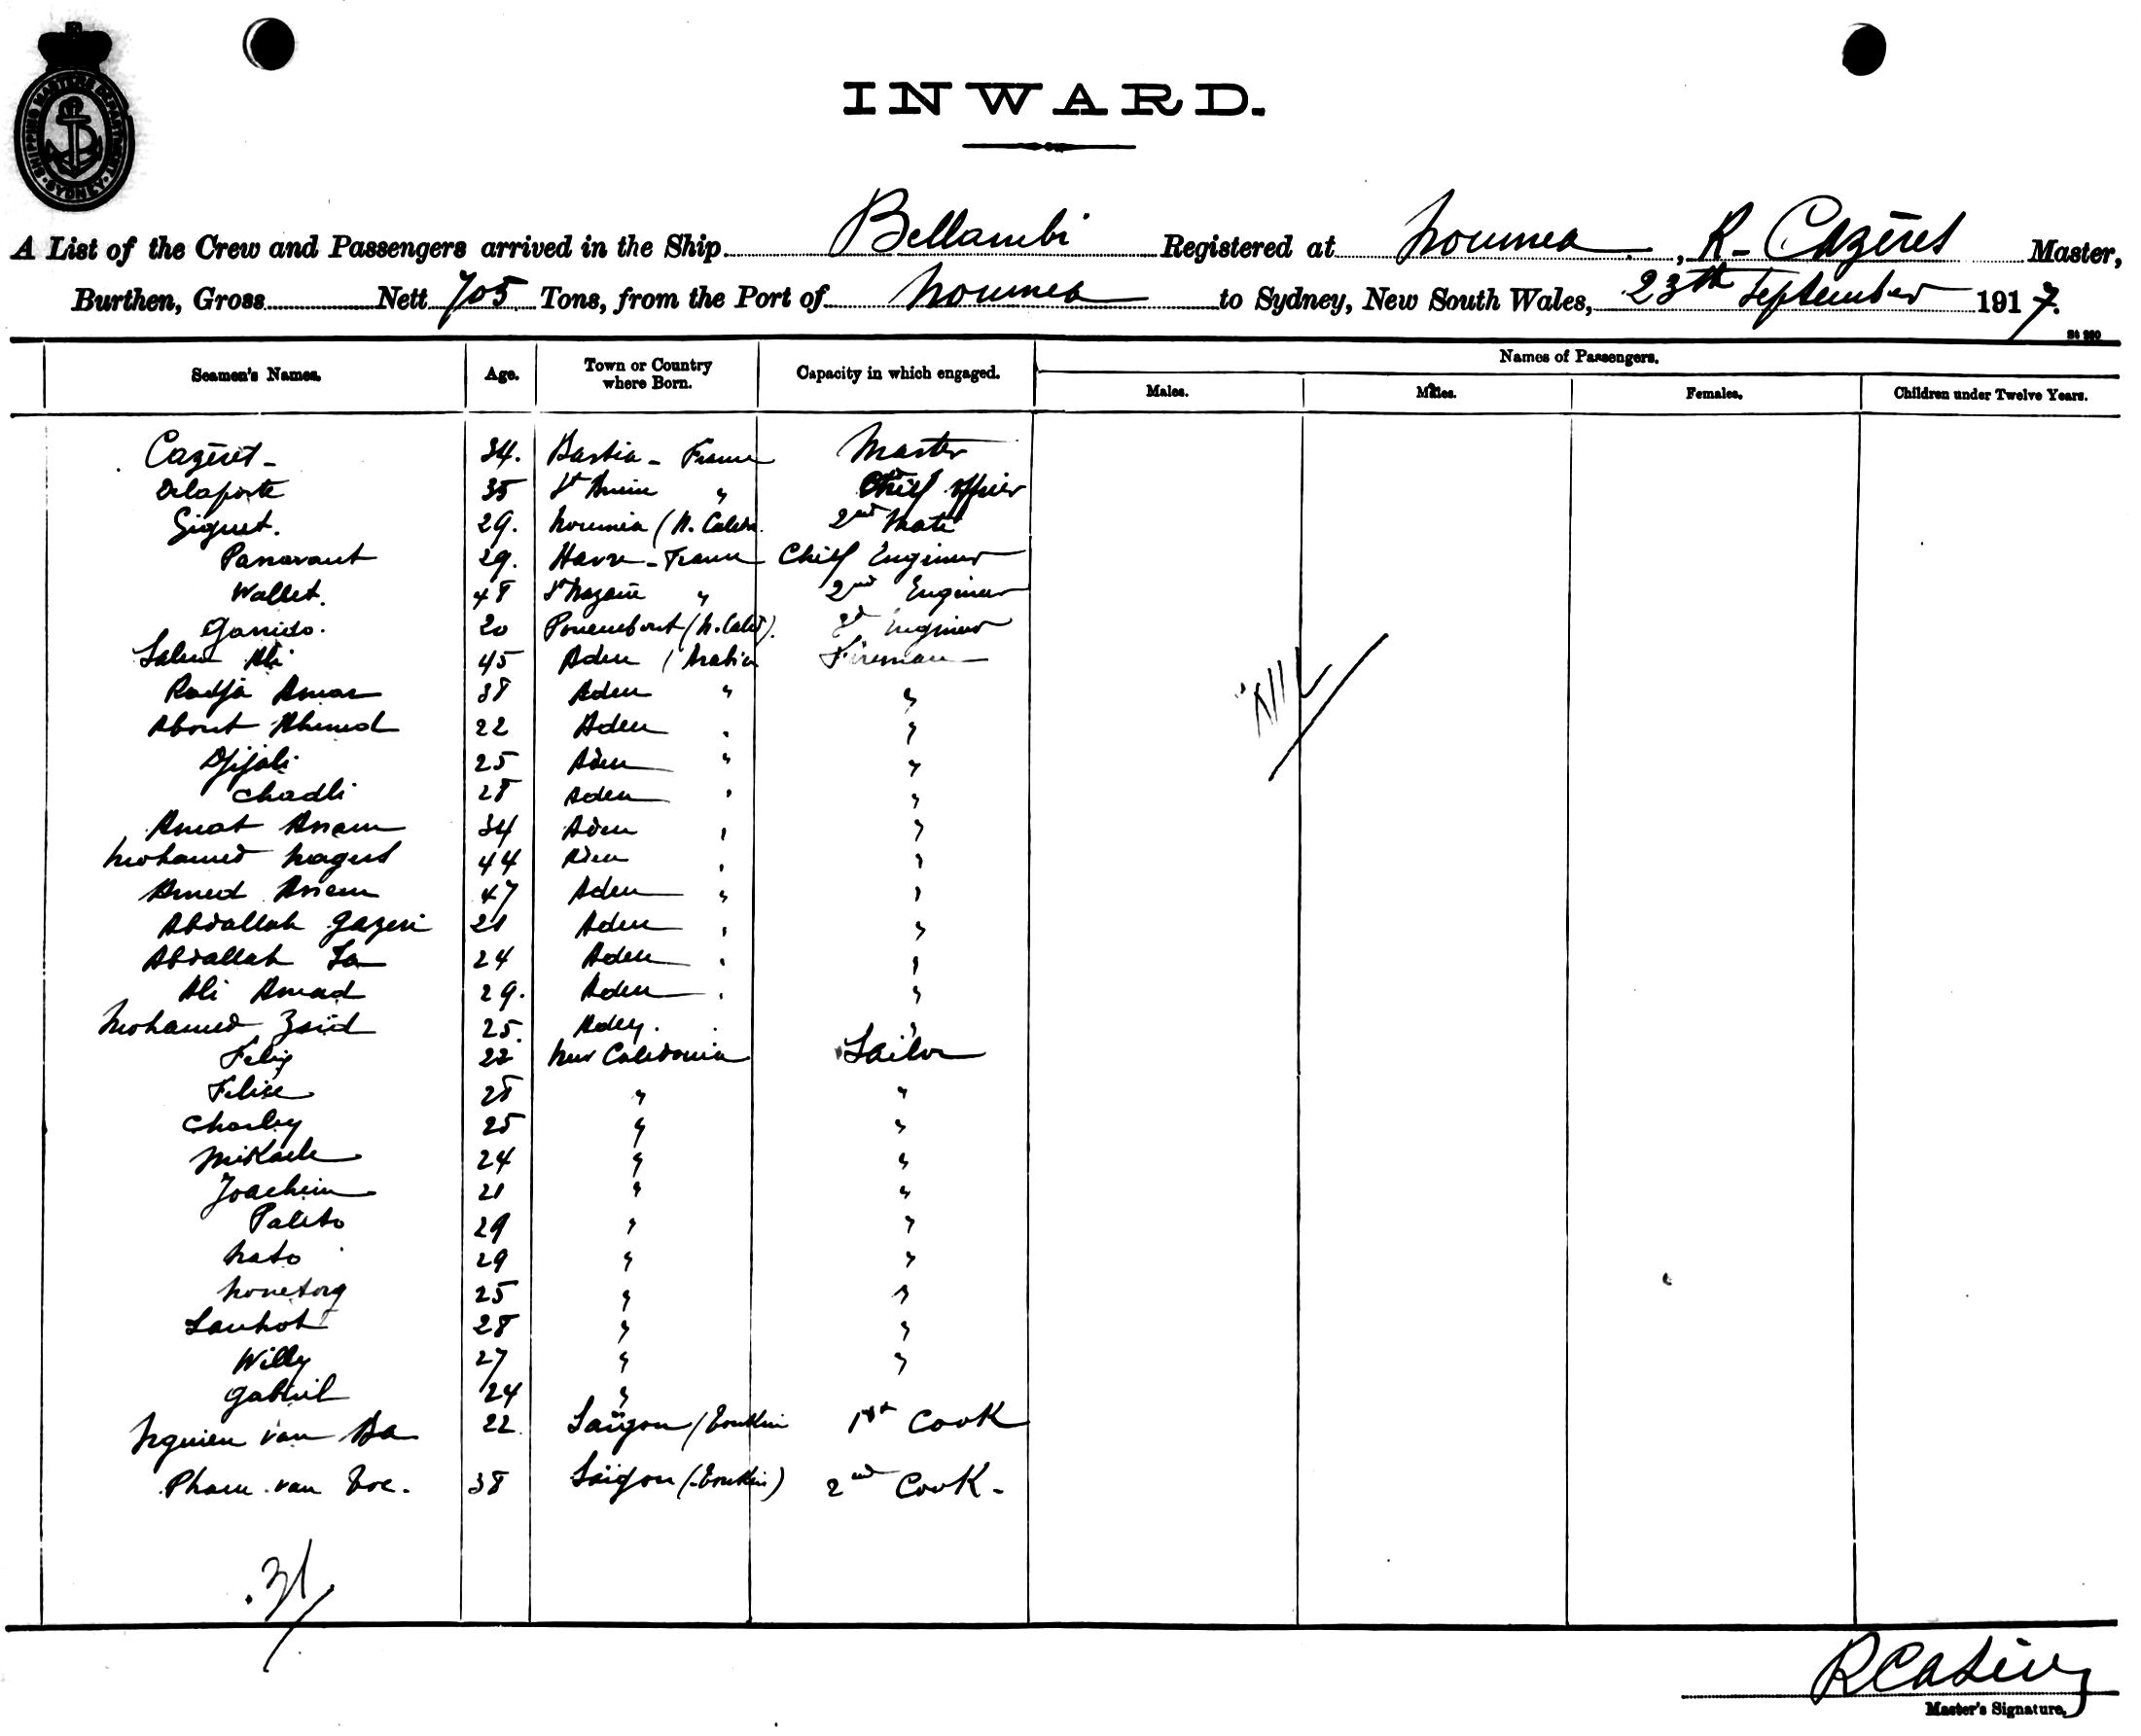 SHIPPING MASTERS DEPARTMENT · SYDNEY ·
INWARD.
A List of the Crew and Passengers arrived in the Ship Bellambi Registered at Noumea, R- Cazères Master,
Burthen, Gross Nett 705 Tons, from the Port of Noumea to Sydney, New South Wales, 23th September 1917.
Seamen's Names. Age. Town or Country where Born. Capacity in which engaged. Names of Passengers.
Males. Males. Females. Children under Twelve Years.
34. Bastia - France Master
Delaporte 35 St " Chief officer
Giquet. 29. Noumia (N. Caledn 2nd Mate
29. Havre - France Chief Engineer
Wallet. 48 St Nazaire " 2nd Engineer
Garrido. 20 (N. Caled). Engineer
Salem Ali 45 Aden (Arabia Fireman
Radja Amar 38 Aden " "
About Ahmed 22 Aden " "
Djijali 25 Aden " "
Chadli 28 Aden " "
Amat Assam 34 Aden " "
Mohamed 44 Aden " "
Amed Assam 47 Aden " "
Abdallah Gazeri 21 Aden " "
Abdallah 24 Aden " "
Ali Amad 29. Aden " "
Mohamed Zaid 25. Aden. " "
Felix 22 New Caledonia Sailor
Felise 28 " "
Charley 25 " "
Mikaele 24 " "
Joachim 21 " "
Paleto 29 " "
Nato 29 " "
25 " "
28 " "
Willy 27 " "
Gabriel 24 "
Nguien van Ba 22 Saïgon (Tonkin 1st Cook
Pham van 38 Saïgon (Tonkin) 2nd Cook -
Nil
31
Master's Signature,